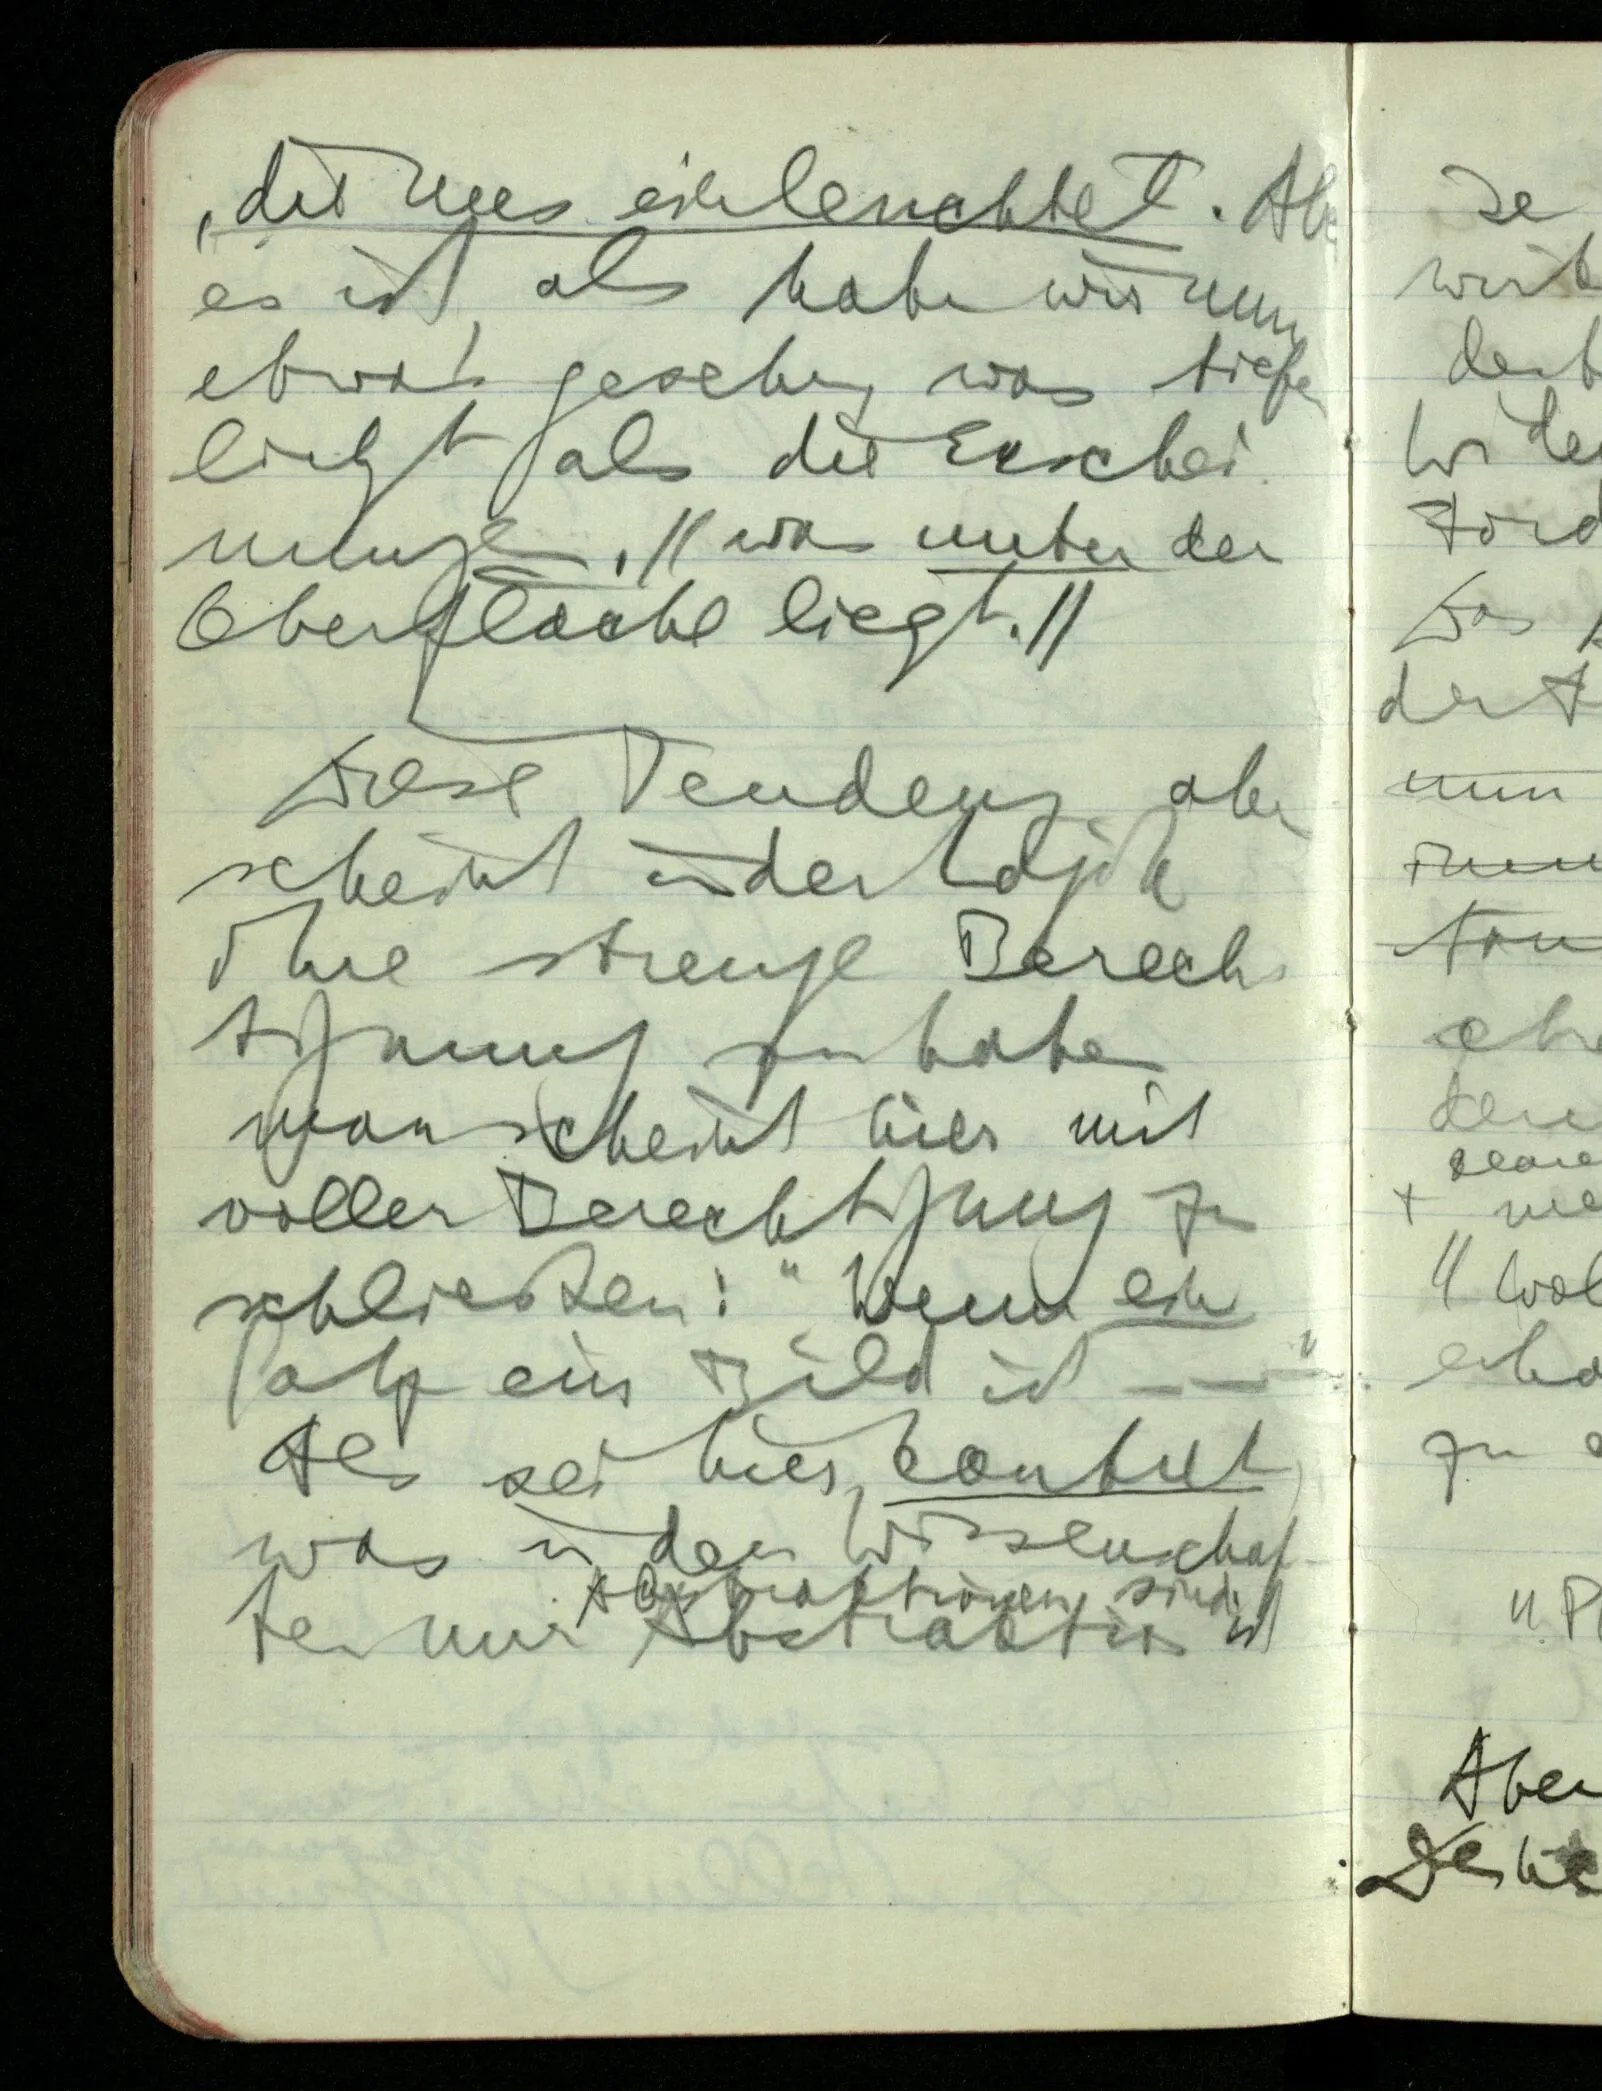 , die uns einleuchtet. Abe
es ist als habe wir nun
etwas gesehen, was tiefer
liegt als die Erschei
nunge. // was unter der
Oberfläche liegt. //
Diese Tendenz aber
scheint in der Logik
ihre strenge Berech
tigung zu haben
man scheint hier mit
voller Berechtigung zu
schließen: " Wenn ein
Satz ein Bild ist — — "
Als sei hier konkret,
was in den Wissenschaf-
Abstraktionen sind
ten nur Abstraktion ist
Se
wirk
der
das
der
nun
zu
Aber